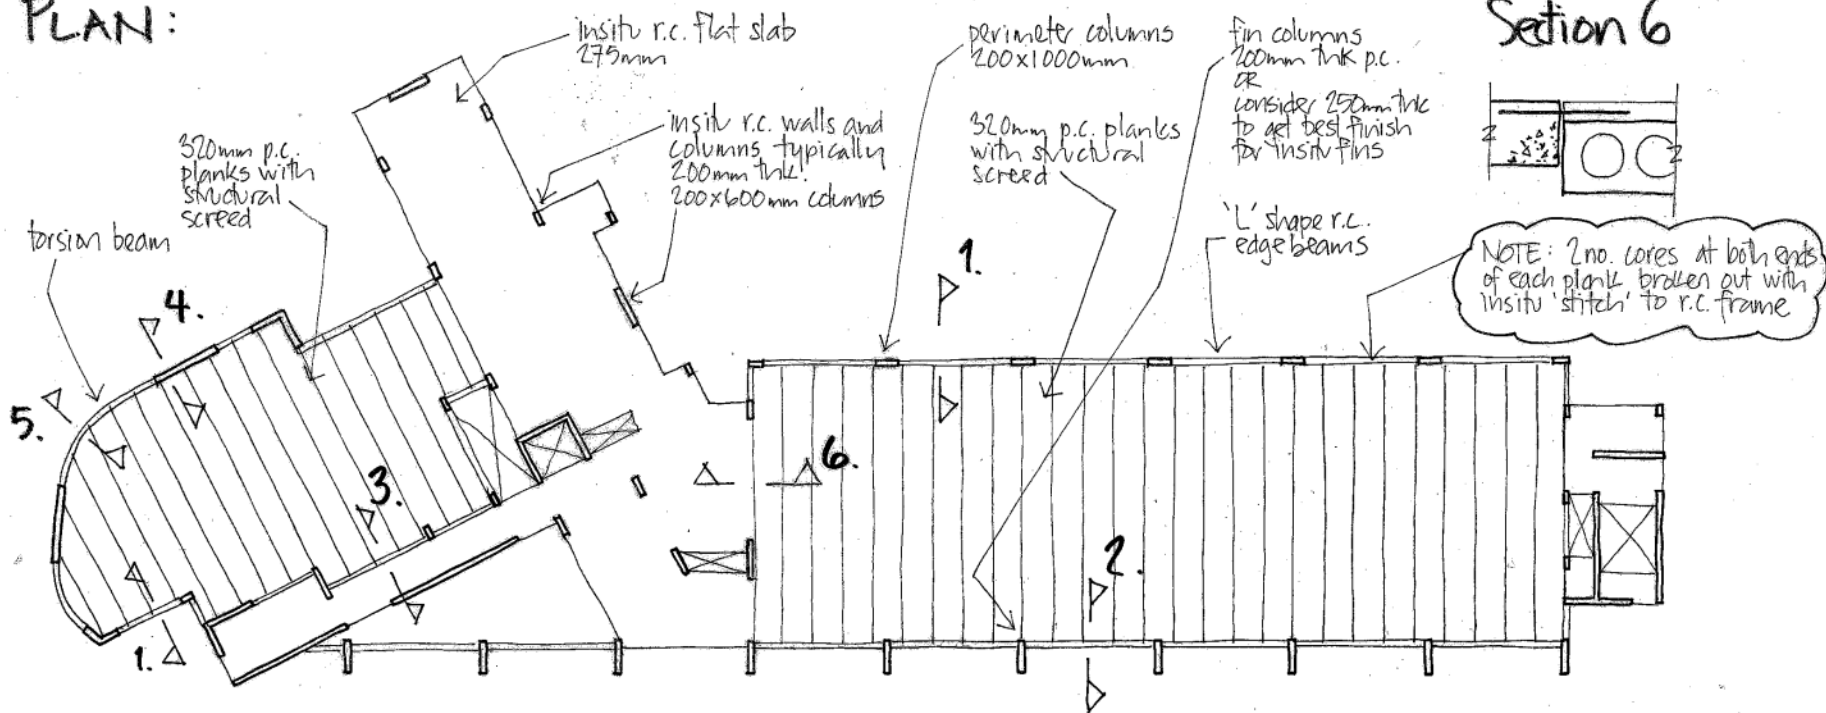 PLAN:
insitu r.c. flat slab
275mm
perimeter columns
200x1000mm
fin columns
200mm thk p.c.
OR
consider 250mm thk
to get best finish
for insitu fins
Section 6
insitu r.c. walls and
columns typically
200mm thk.
200x600mm columns
320mm p.c. planks
with structural
screed
320mm p.c.
planks with
structural
screed
torsion beam
'L' shape r.c.
edge beams
NOTE: 2 no. cores at both ends
of each plank broken out with
insitu 'stitch' to r.c. frame
1.
4.
5.
3.
6.
2.
1.